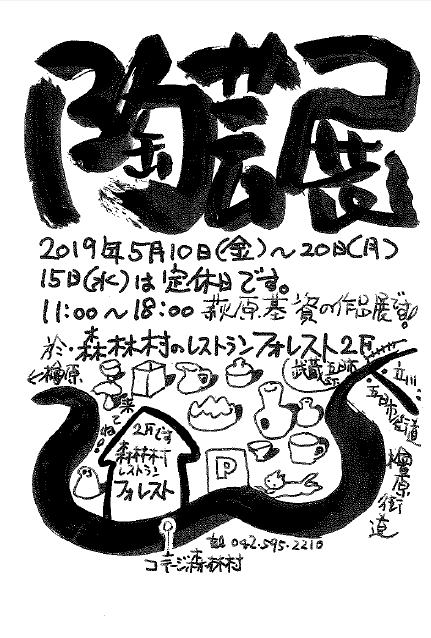 陶芸展
2019年5月10日(金)～20日(月)
15日(水)は定休日です。
11:00～18:00 萩原基資の作品展です。
於・森林村のレストランフォレスト2F
←檜原
武蔵五日市
立川
五日市街道
檜原街道
2Fです
森林村
レストラン
フォレスト
P
コテージ森林村
☎042-595-2210